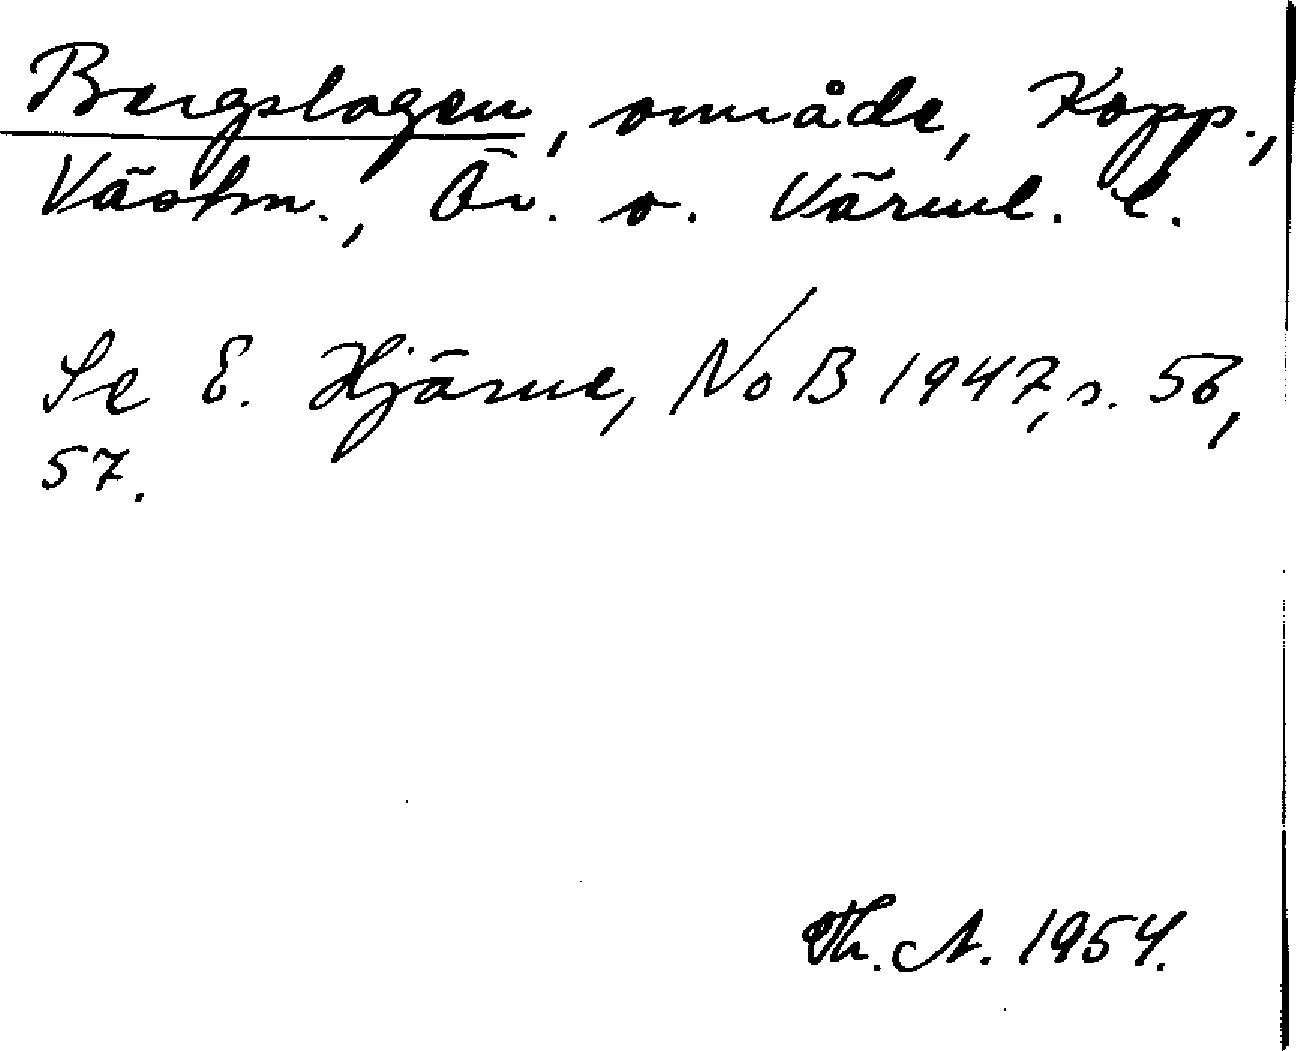 Bergslagen, område, Kopp.,
Västm., Ör. o. Värml. l.
Se E. Hjärne, NoB 1947, s. 56,
57.
Th. A. 1954.